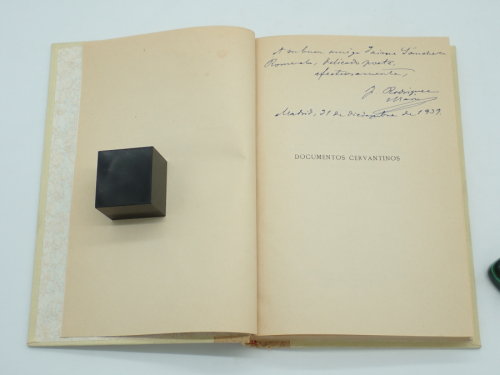 A su buen amigo Jaime Sánchez
Romeralo, delicado poeta,
afectuosamente,
Rodríguez
Marín
Madrid, 31 de diciembre de 1937.
DOCUMENTOS CERVANTINOS